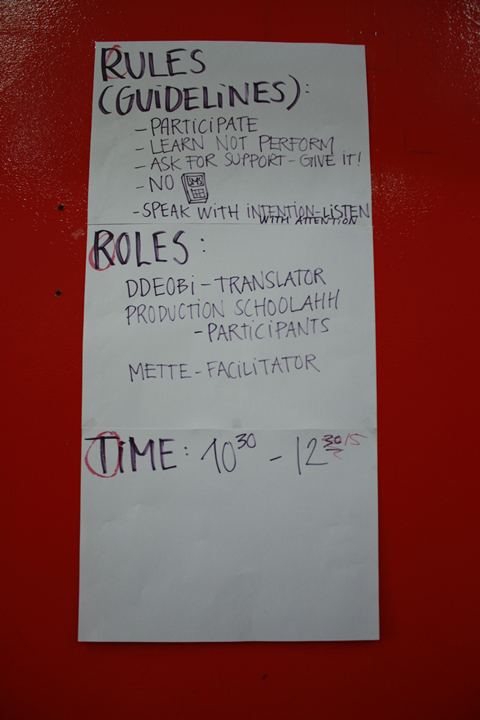 RULES
(GUIDELINES):
- PARTICIPATE
- LEARN NOT PERFORM
- ASK FOR SUPPORT - GIVE IT!
- NO
- SPEAK WITH INTENTION - LISTEN
WITH ATTENTION
ROLES:
DDEOBI - TRANSLATOR
PRODUCTION SCHOOLAHH
- PARTICIPANTS
METTE - FACILITATOR
TIME: 10³⁰ - 12³⁰ 15